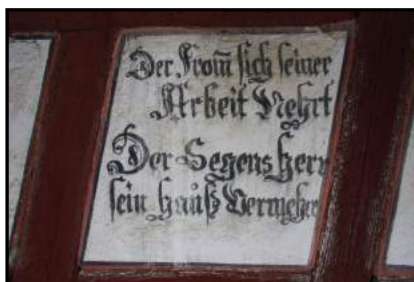 Der From̄ sich seiner
Arbeit Nehrt
Der Segens Herr
sein Hauß Vermehrt